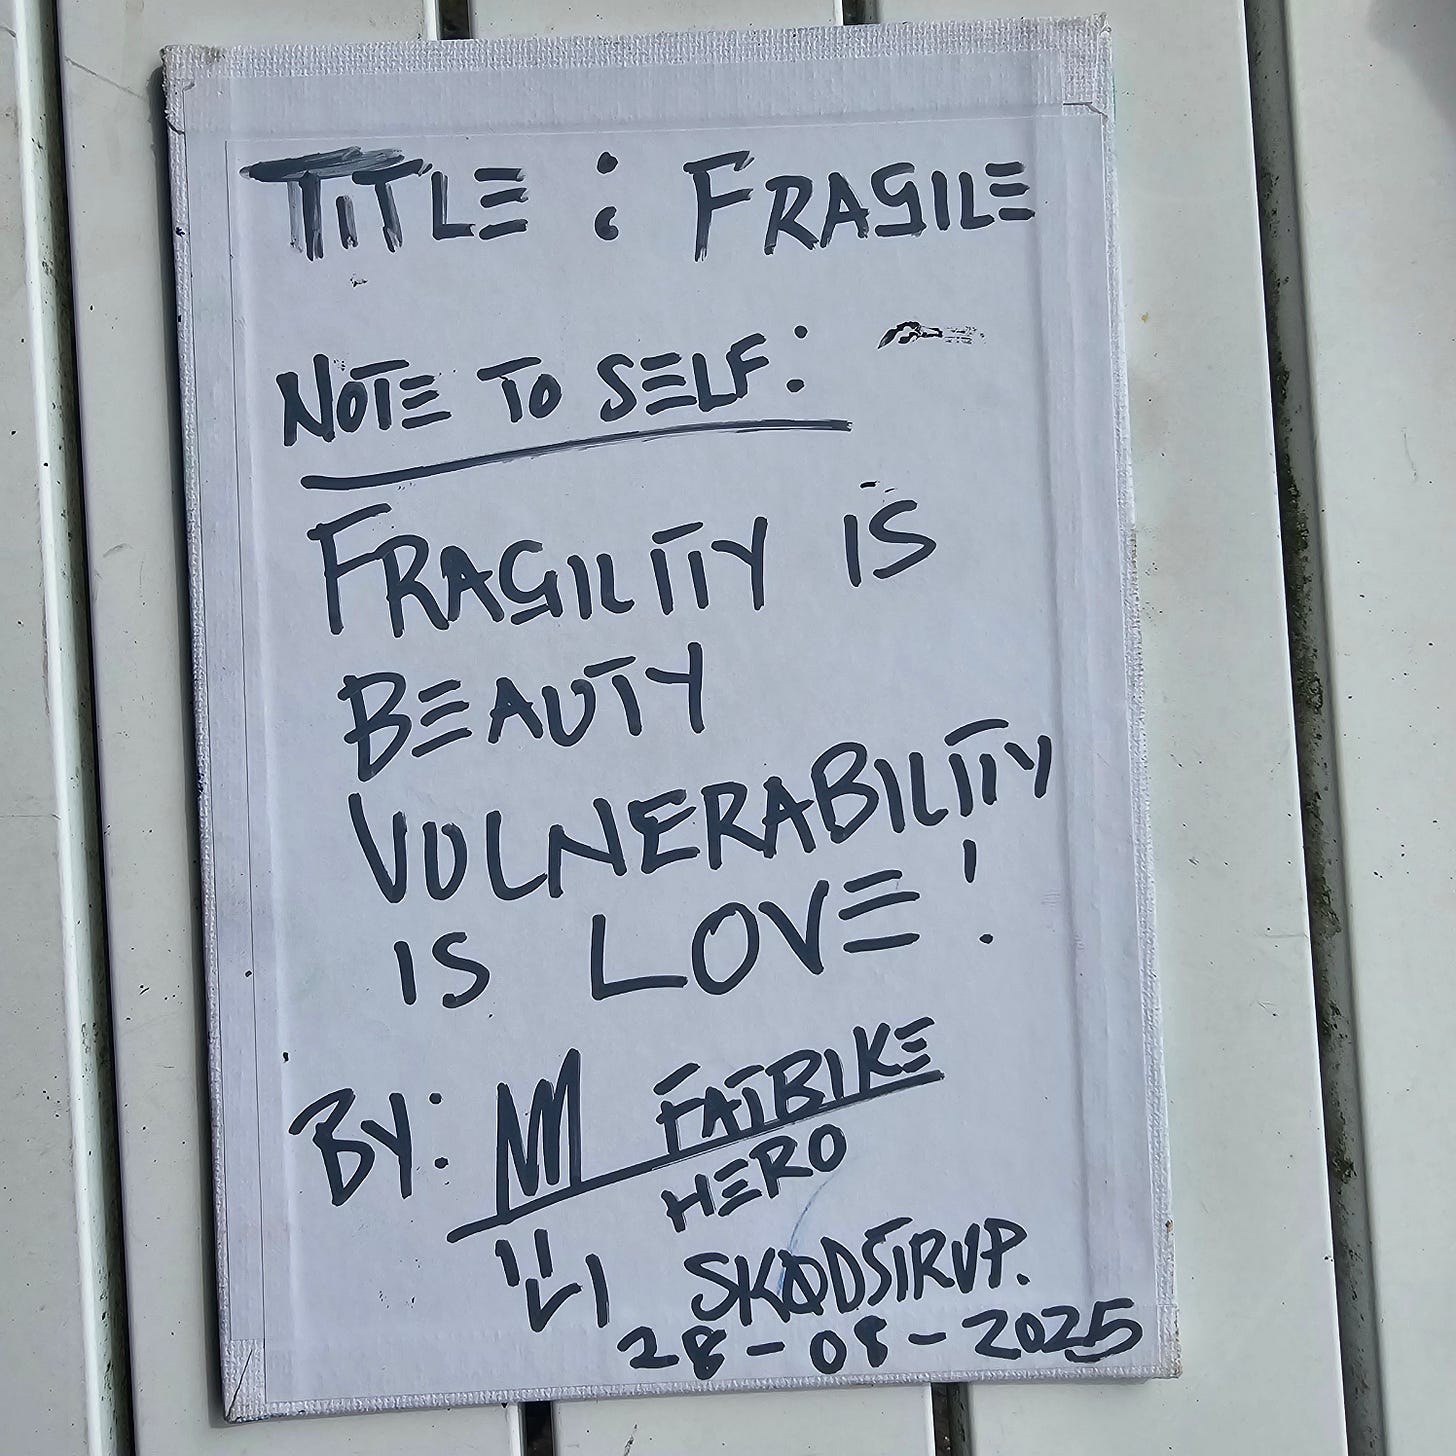 TITLE : FRAGILE
NOTE TO SELF:
FRAGILITY IS
BEAUTY
VULNERABILITY
IS LOVE!
BY: FATBIKE
HERO
SKØDSTRUP.
28-08-2025